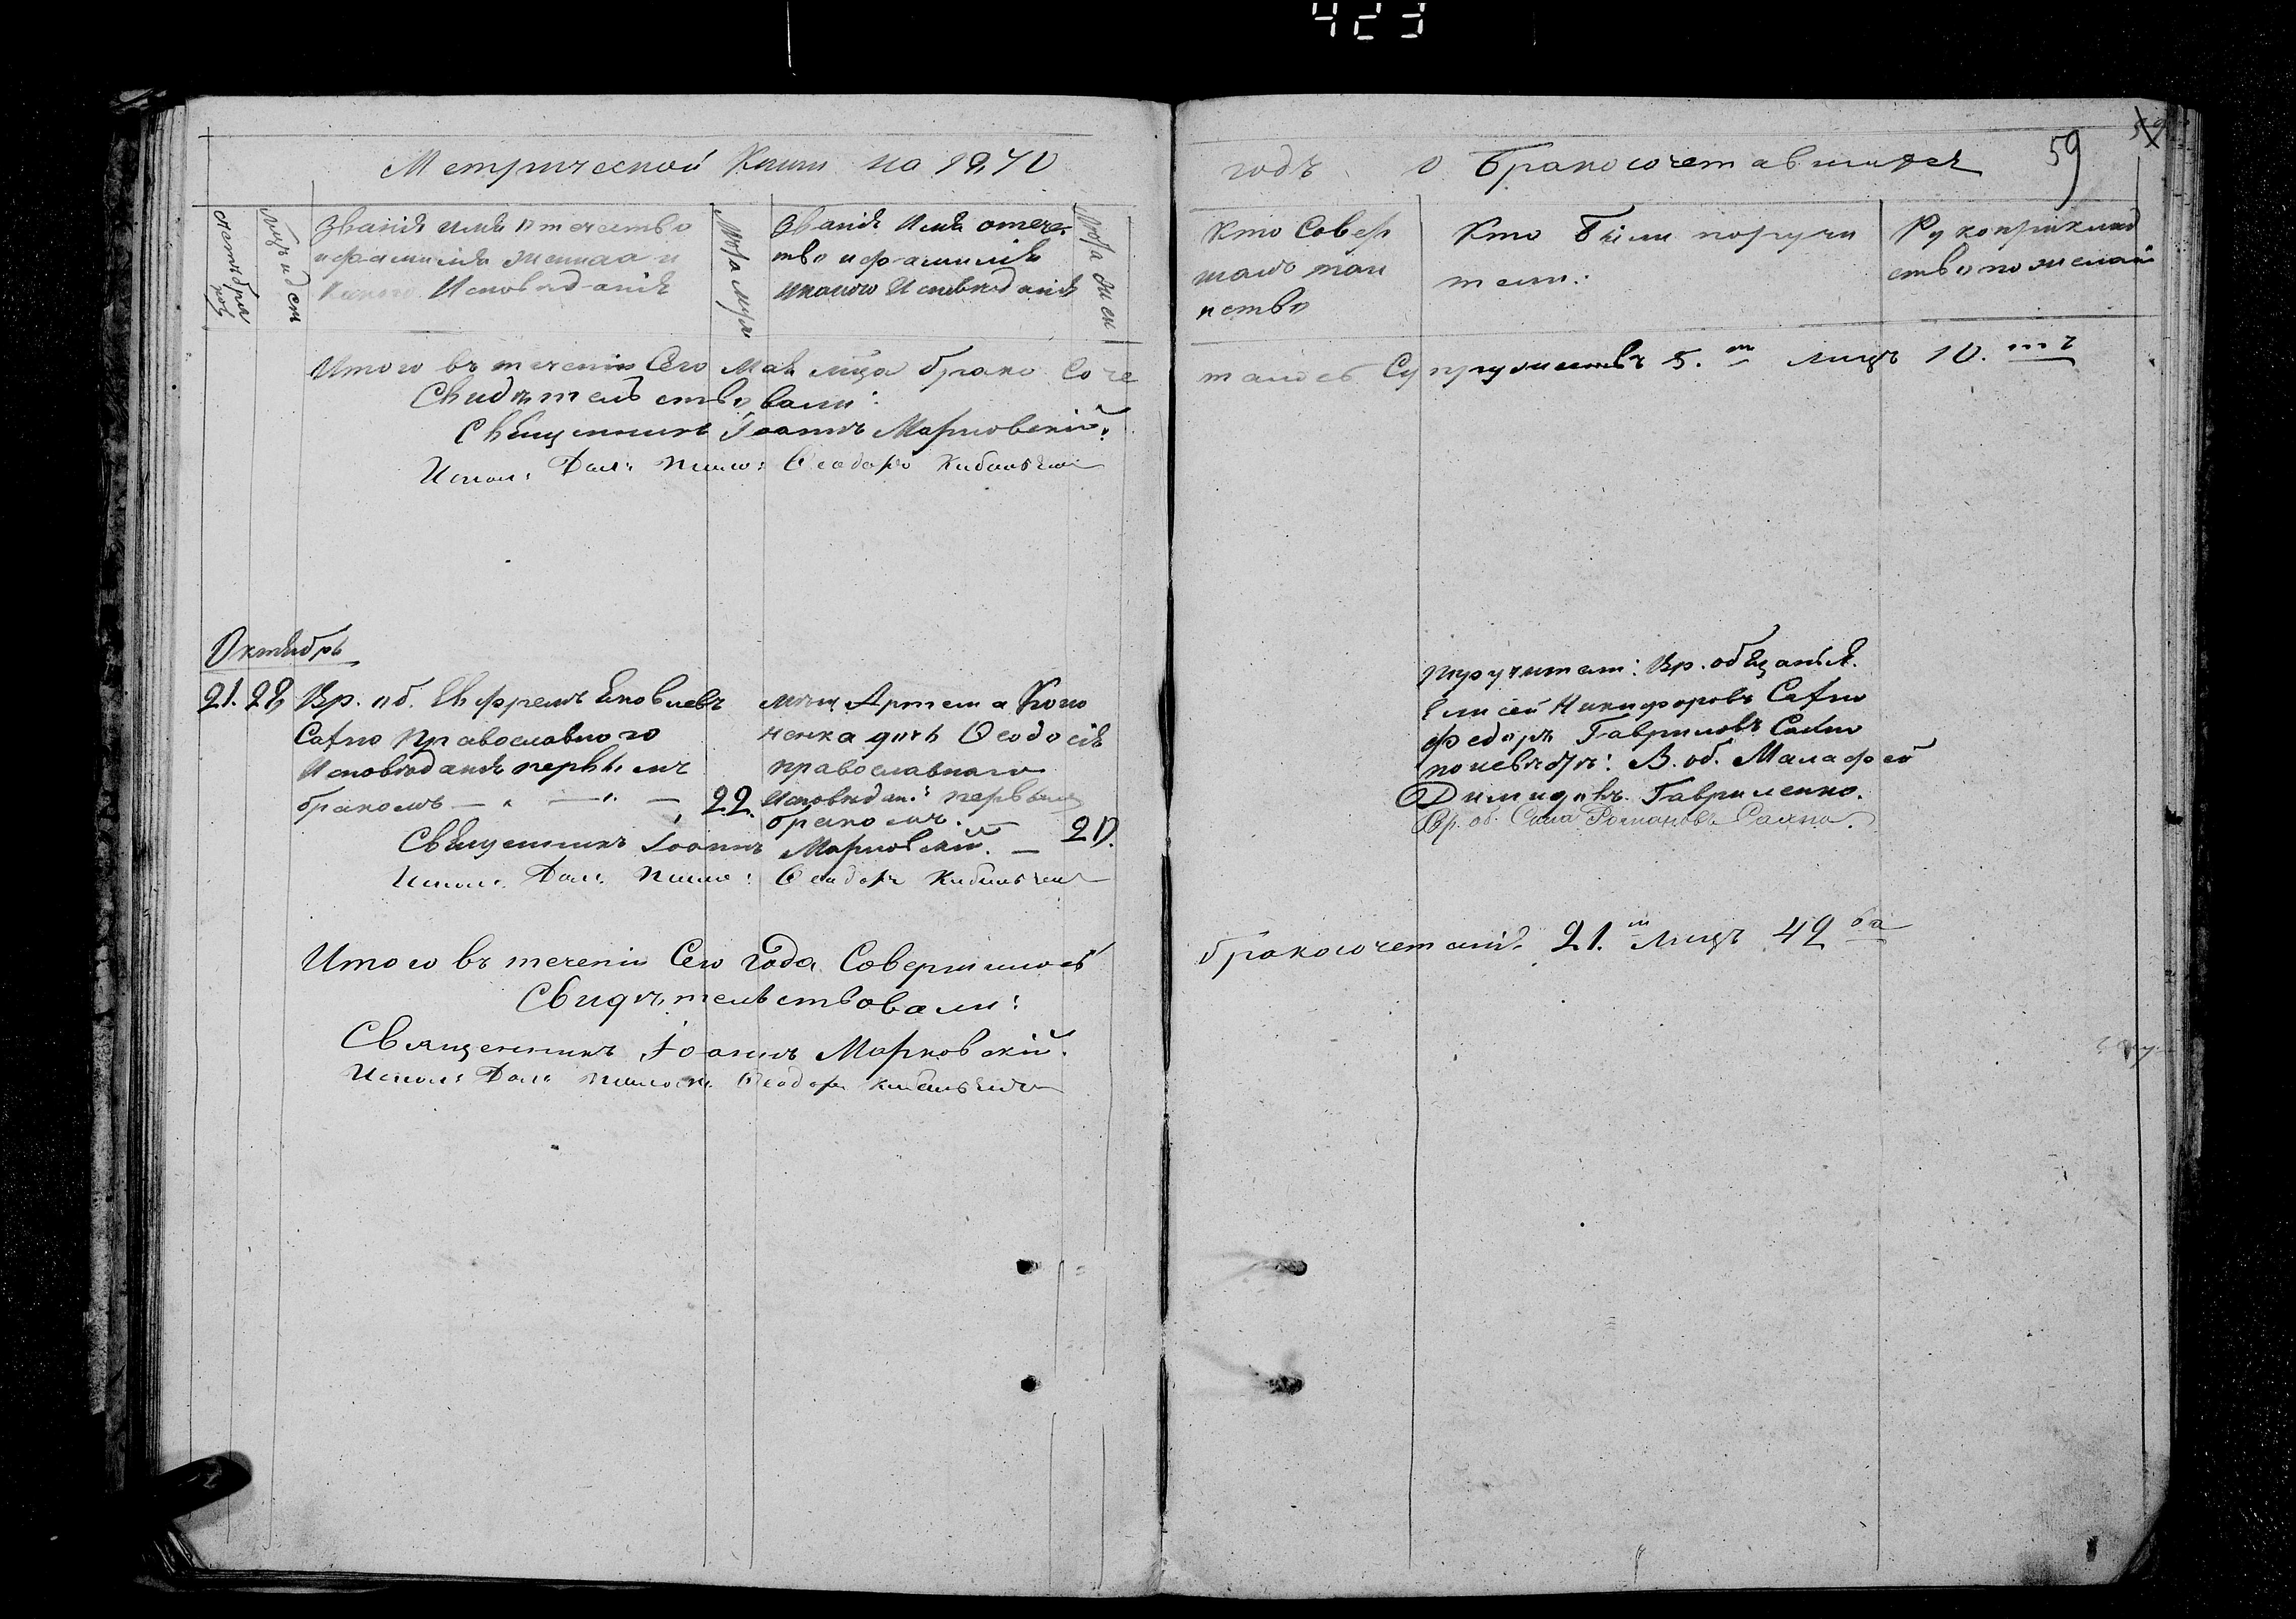 423
Метрической Книги на 1870
годъ о Бракосочетавшихся 59
Счетъ браковъ
Мцъ и день
Званіе имя отчество
и фамилія жениха и
какого Исповѣданія
Лѣта
Званіе Имя отече-
тво и фамилія
и какого Исповѣданія
Лѣта
Кто Совер
шалъ таи
нство
Кто Были поручи
тели:
Рукоприклад
ство по желані
Итого въ теченіи Сего Мая мѣца брако Соче
талось Супружествъ 5. лицъ 10.
Свидѣтельствовали:
Священникъ Іоаннъ Марковскій.
Испол: Дол:
Октябрь
21. 28, Вр. об. Ефремъ Яковлевъ
Православного
Исповѣданія первымъ
бракомъ — „ — „ — 22.
Артема
дочь Ѳеодосія
православнаго
Исповѣдані: первымъ
бракомъ. — 20.
Священникъ Іоаннъ Марковскій.
Испол: Дол: Ѳеодоръ
поручители: Вр. обязаныя.
Елисей Никифоровъ
Федоръ Гавриловъ
по невѣстѣ: В. об. Малафей
Димидовъ Гавриленко.
Вр. об. Романовъ
Итого въ теченіи Сего Года Совершилось
бракосочетаній 21. лицъ 42
Свидѣтельствовали:
Священникъ Іоаннъ Марковскій.
Испол: Дол: Ѳеодоръ